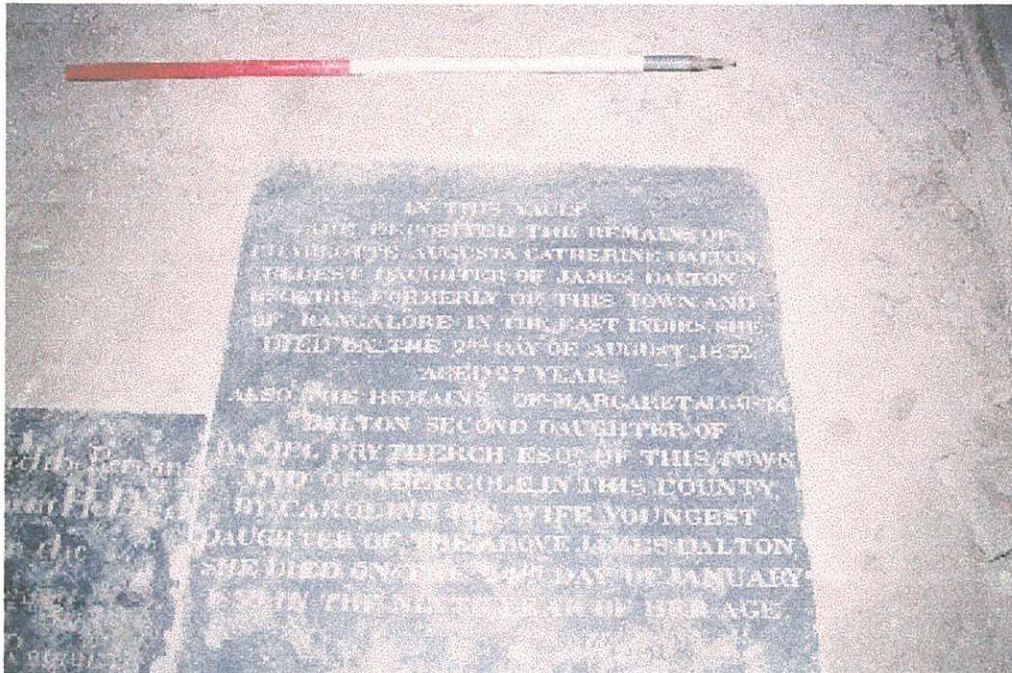 IN THIS VAULT
ARE DEPOSITED THE REMAINS OF
CHARLOTTE AUGUSTA CATHERINE DALTON
ELDEST DAUGHTER OF JAMES DALTON
ESQUIRE, FORMERLY OF THIS TOWN AND
OF BANGALORE IN THE EAST INDIES, SHE
DIED ON THE 2nd DAY OF AUGUST, 1832
AGED 27 YEARS
ALSO THE REMAINS OF MARGARET AUGUSTA
DALTON SECOND DAUGHTER OF
DANIEL PRYTHERCH ESQr OF THIS TOWN
AND OF ABERGOLE IN THIS COUNTY,
BY CAROLINE HIS WIFE YOUNGEST
DAUGHTER OF THE ABOVE JAMES DALTON
SHE DIED ON THE DAY OF JANUARY
IN THE YEAR OF HER AGE
the